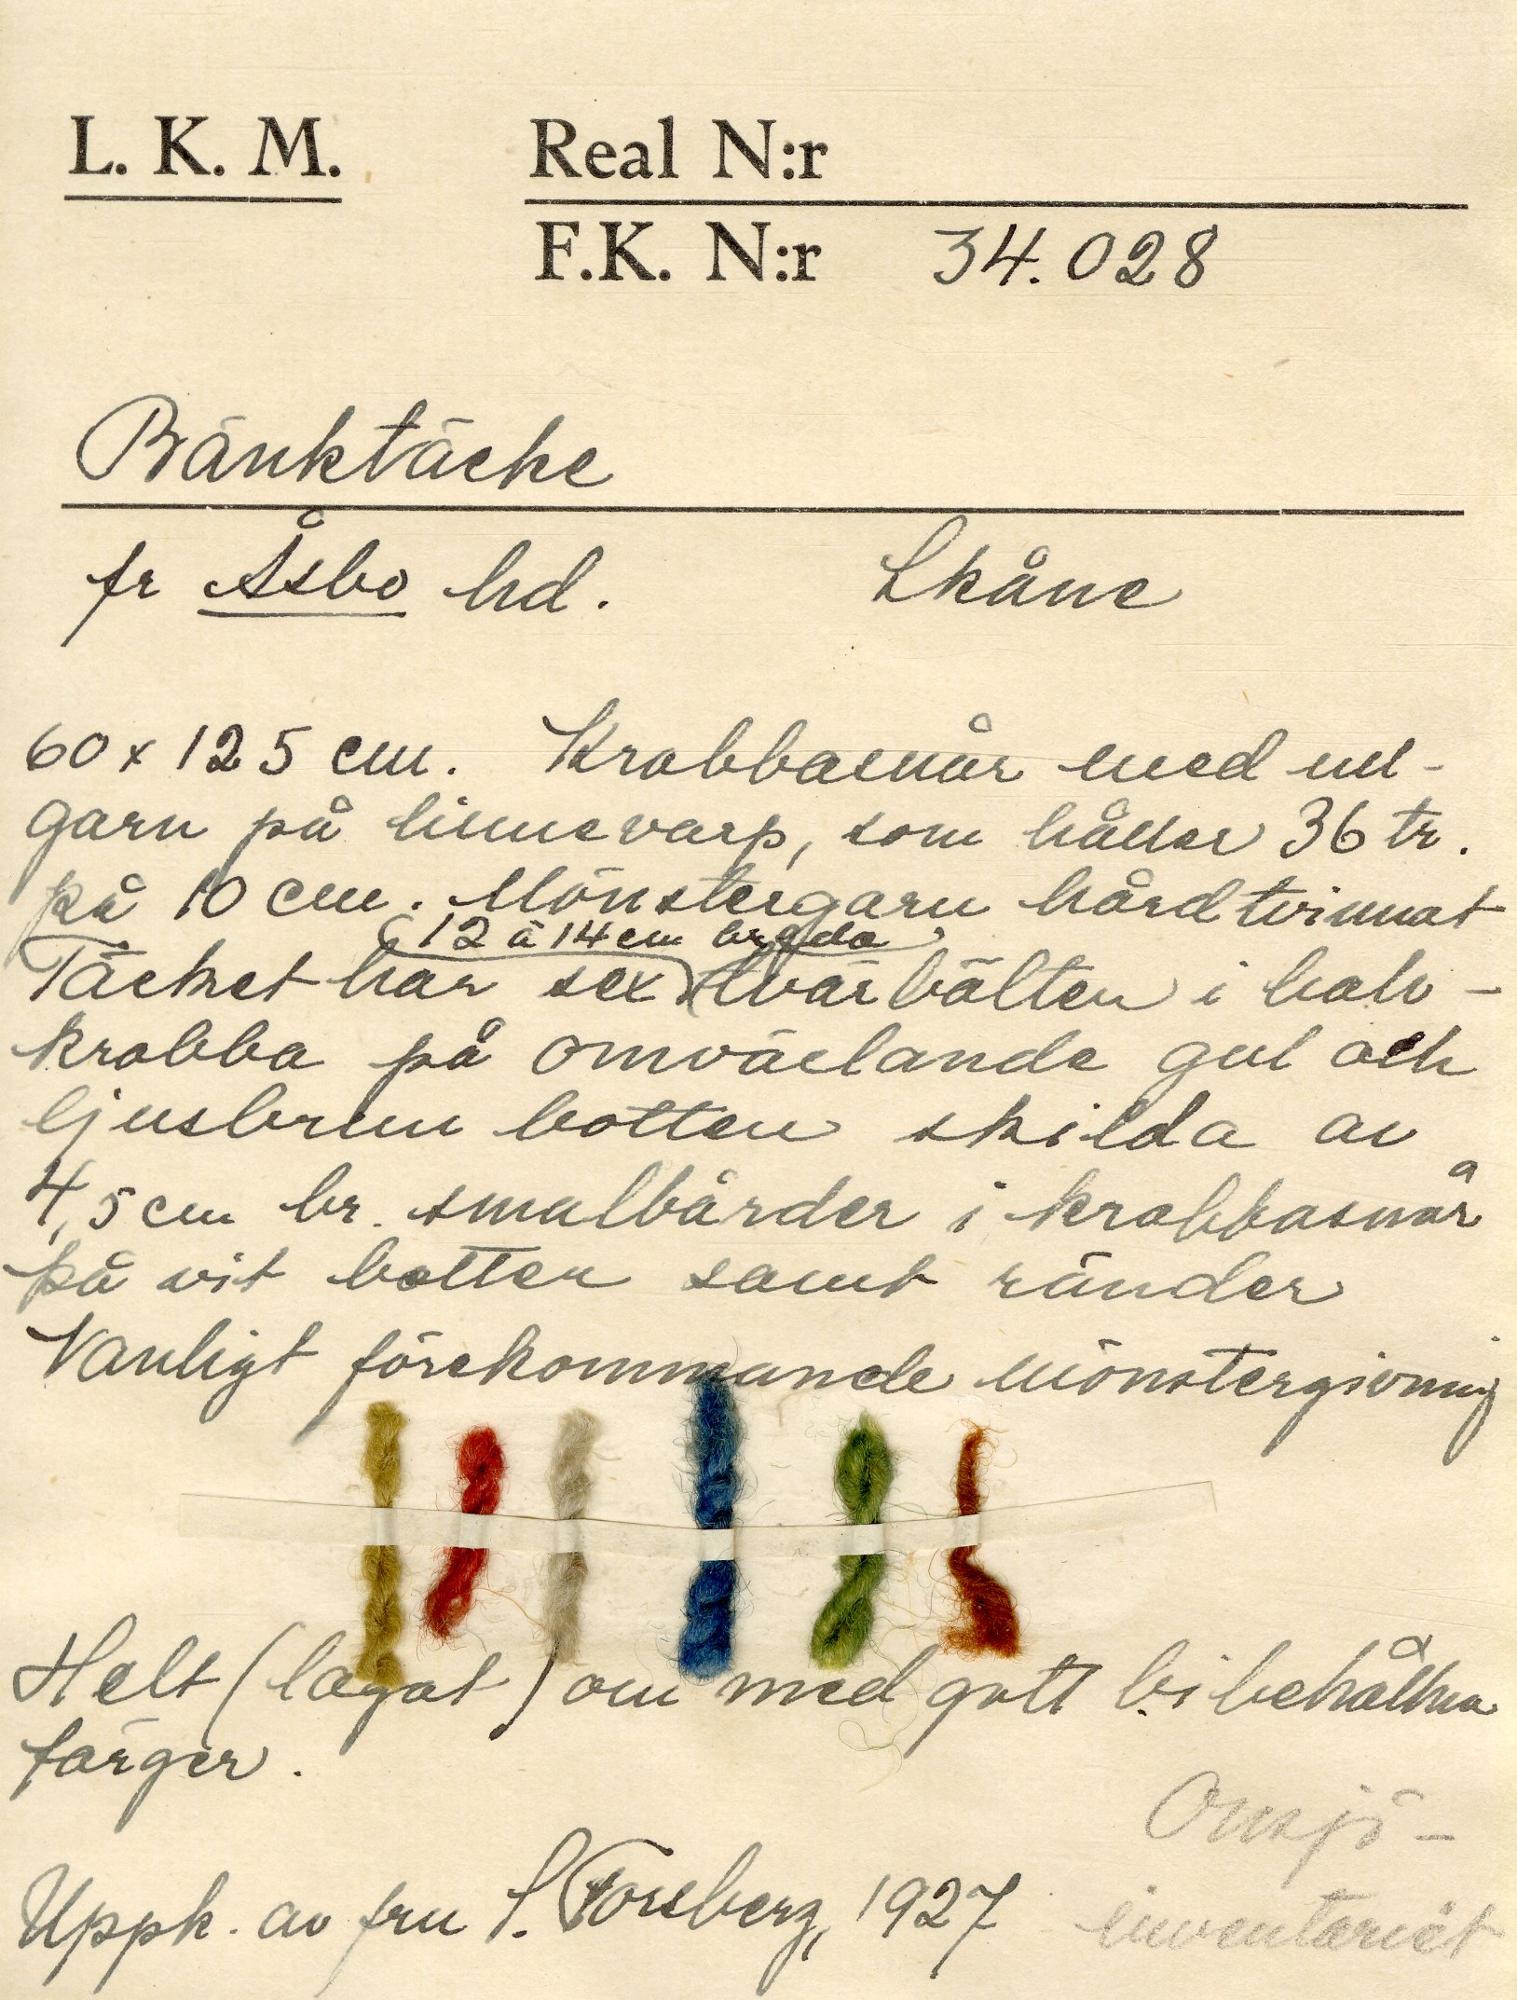 L. K. M. Real N:r
F.K. N:r 34.028
Bänktäcke
fr Åsbo hd. Skåne
60 x 125 cm. Krabbasnår med ull-
garn på linnevarp, som håller 36 tr.
på 10 cm. Mönstergarn hårdtvinnat
(12 à 14 cm breda)
Täcket har sex tvärbälten i halv-
krabba på omväxlande gul och
ljusbrun botten skilda av
4,5 cm br. smalbårder i krabbasnår
på vit botten samt ränder
Vanligt förekommande mönstergivning
Helt (lagat) om med gott bibehållna
färger.
Onsjö-
Uppk. av fru S. Forsberg, 1927 inventariet